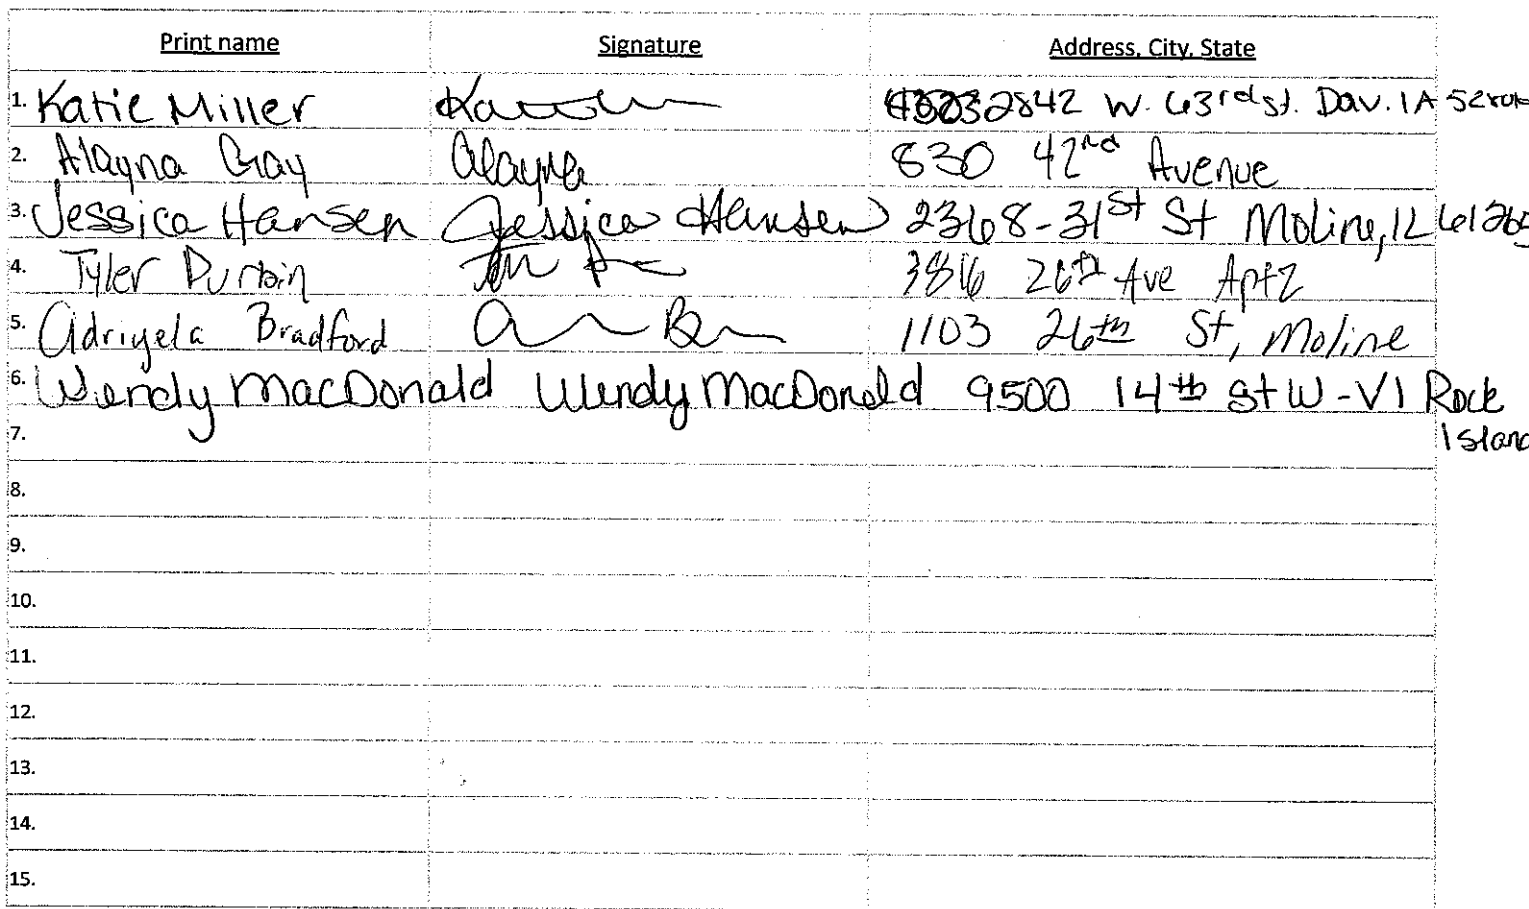 Print name Signature Address, City, State
1. Katie Miller 2842 W. 63rd st. Dav. IA
2. Alayna Gray Alayna 830 42nd Avenue
3. Jessica Hansen Jessica Hansen 2368-31st St Moline, IL 61265
4. Tyler Durbin 26th Ave Apt 2
5. Adriyela Bradford 1103 26th St, Moline
6. Wendy MacDonald Wendy MacDonald 9500 14th St W - V1 Rock
Island
7.
8.
9.
10.
11.
12.
13.
14.
15.